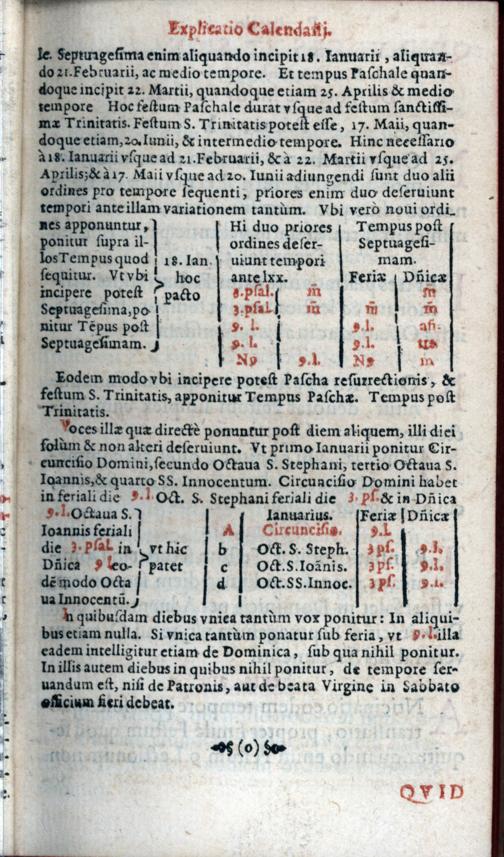 Explicatio Calendarij.
le. Septuagesima enim aliquando incipit 18. Ianuarii, aliquan-
do 21. Februarii, ac medio tempore. Et tempus Paschale quan-
doque incipit 22. Martii, quandoque etiam 25. Aprilis & medio
tempore Hoc festum Paschale durat vsque ad festum sanctissi-
mæ Trinitatis. Festum S. Trinitatis potest esse, 17. Maii, quan-
doque etiam, 20. Iunii, & intermedio tempore. Hinc necessario
à 18. Ianuarii vsque ad 21. Februarii, & à 22. Martii vsque ad 25.
Aprilis; & à 17. Maii vsque ad 20. Iunii adiungendi sunt duo alii
ordines pro tempore sequenti, priores enim duo deseruiunt
tempori ante illam variationem tantùm. Vbi verò noui ordi-
nes apponuntur,
ponitur supra il-
los Tempus quod
sequitur. Vt vbi
incipere potest
Septuagesima, po
nitur Tẽpus post
Septuagesimam.
18. Ian.
hoc
pacto
Hi duo priores
ordines deser-
uiunt tempori
ante lxx.
8. psal. m̃
3. psal. m̃
9. l.
9. l.
N9 9. l.
Tempus post
Septuagesi-
mam.
Feriæ Dñicæ
m̃
m̃ m̃
9. l.
9. l.
N9 m
Eodem modo vbi incipere potest Pascha resurrectionis, &
festum S. Trinitatis, apponitur Tempus Paschæ. Tempus post
Trinitatis.
Voces illæ quæ directè ponuntur post diem aliquem, illi diei
solùm & non alteri deseruiunt. Vt primo Ianuarii ponitur Cir-
cuncisio Domini, secundo Octaua S. Stephani, tertio Octaua S.
Ioannis, & quarto SS. Innocentum. Circuncisio Domini habet
in feriali die 9. l. Oct. S. Stephani feriali die 3. ps. & in Dñica
9. l. Octaua S.
Ioannis feriali
die 3. psal. in
Dñica 9 l eo-
dẽ modo Octa
ua Innocentũ.
vt hic
patet
Ianuarius. Feriæ Dñicæ
A Circuncisio. 9. l.
b Oct. S. Steph. 3 ps. 9. l.
c Oct. S. Ioãnis. 3 ps. 9. l.
d Oct. SS. Innoc. 3 ps. 9. l.
In quibusdam diebus vnica tantùm vox ponitur: In aliqui-
bus etiam nulla. Si vnica tantùm ponatur sub feria, vt 9. l. illa
eadem intelligitur etiam de Dominica, sub qua nihil ponitur.
In illis autem diebus in quibus nihil ponitur, de tempore ser-
uandum est, nisi de Patronis, aut de beata Virgine in Sabbato
officium fieri debeat.
(o)
QVID